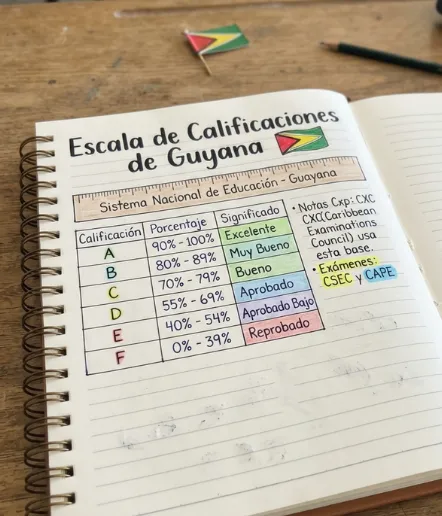 Escala de Calificaciones
de Guyana
Sistema Nacional de Educación - Guayana
Calificación Porcentaje Significado
A 90% - 100% Excelente
B 80% - 89% Muy Bueno
C 70% - 79% Bueno
D 55% - 69% Aprobado
E 40% - 54% Aprobado Bajo
F 0% - 39% Reprobado
• Notas Cxp: CXC
CXC(Caribbean
Examinations
Council) usa
esta base.
• Exámenes:
CSEC y CAPE